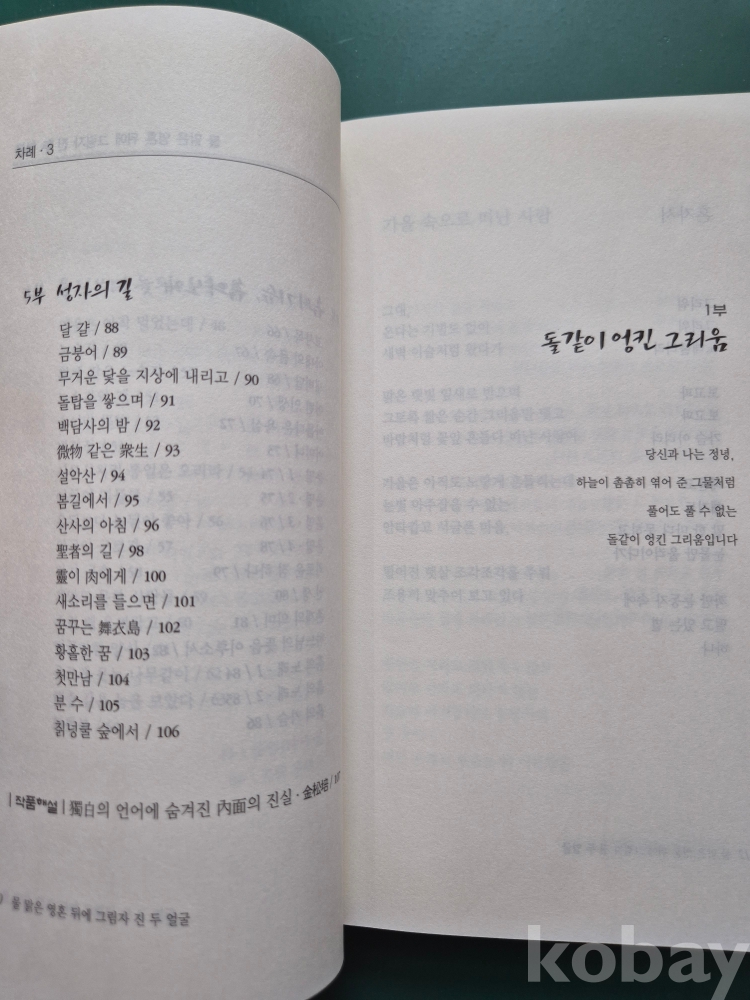 차례 · 3
5부 성자의 길
달 걀 / 88
금붕어 / 89
무거운 닻을 지상에 내리고 / 90
돌탑을 쌓으며 / 91
백담사의 밤 / 92
微物 같은 衆生 / 93
설악산 / 94
봄길에서 / 95
산사의 아침 / 96
聖者의 길 / 98
靈이 肉에게 / 100
새소리를 들으면 / 101
꿈꾸는 舞衣島 / 102
황홀한 꿈 / 103
첫만남 / 104
분 수 / 105
칡넝쿨 숲에서 / 106
| 작품해설 | 獨白의 언어에 숨겨진 內面의 진실 · 金松培 / 107
물 맑은 영혼 뒤에 그림자 진 두 얼굴
1부
돌같이 엉킨 그리움
당신과 나는 정녕,
하늘이 촘촘히 엮어 준 그물처럼
풀어도 풀 수 없는
돌같이 엉킨 그리움입니다
kobay